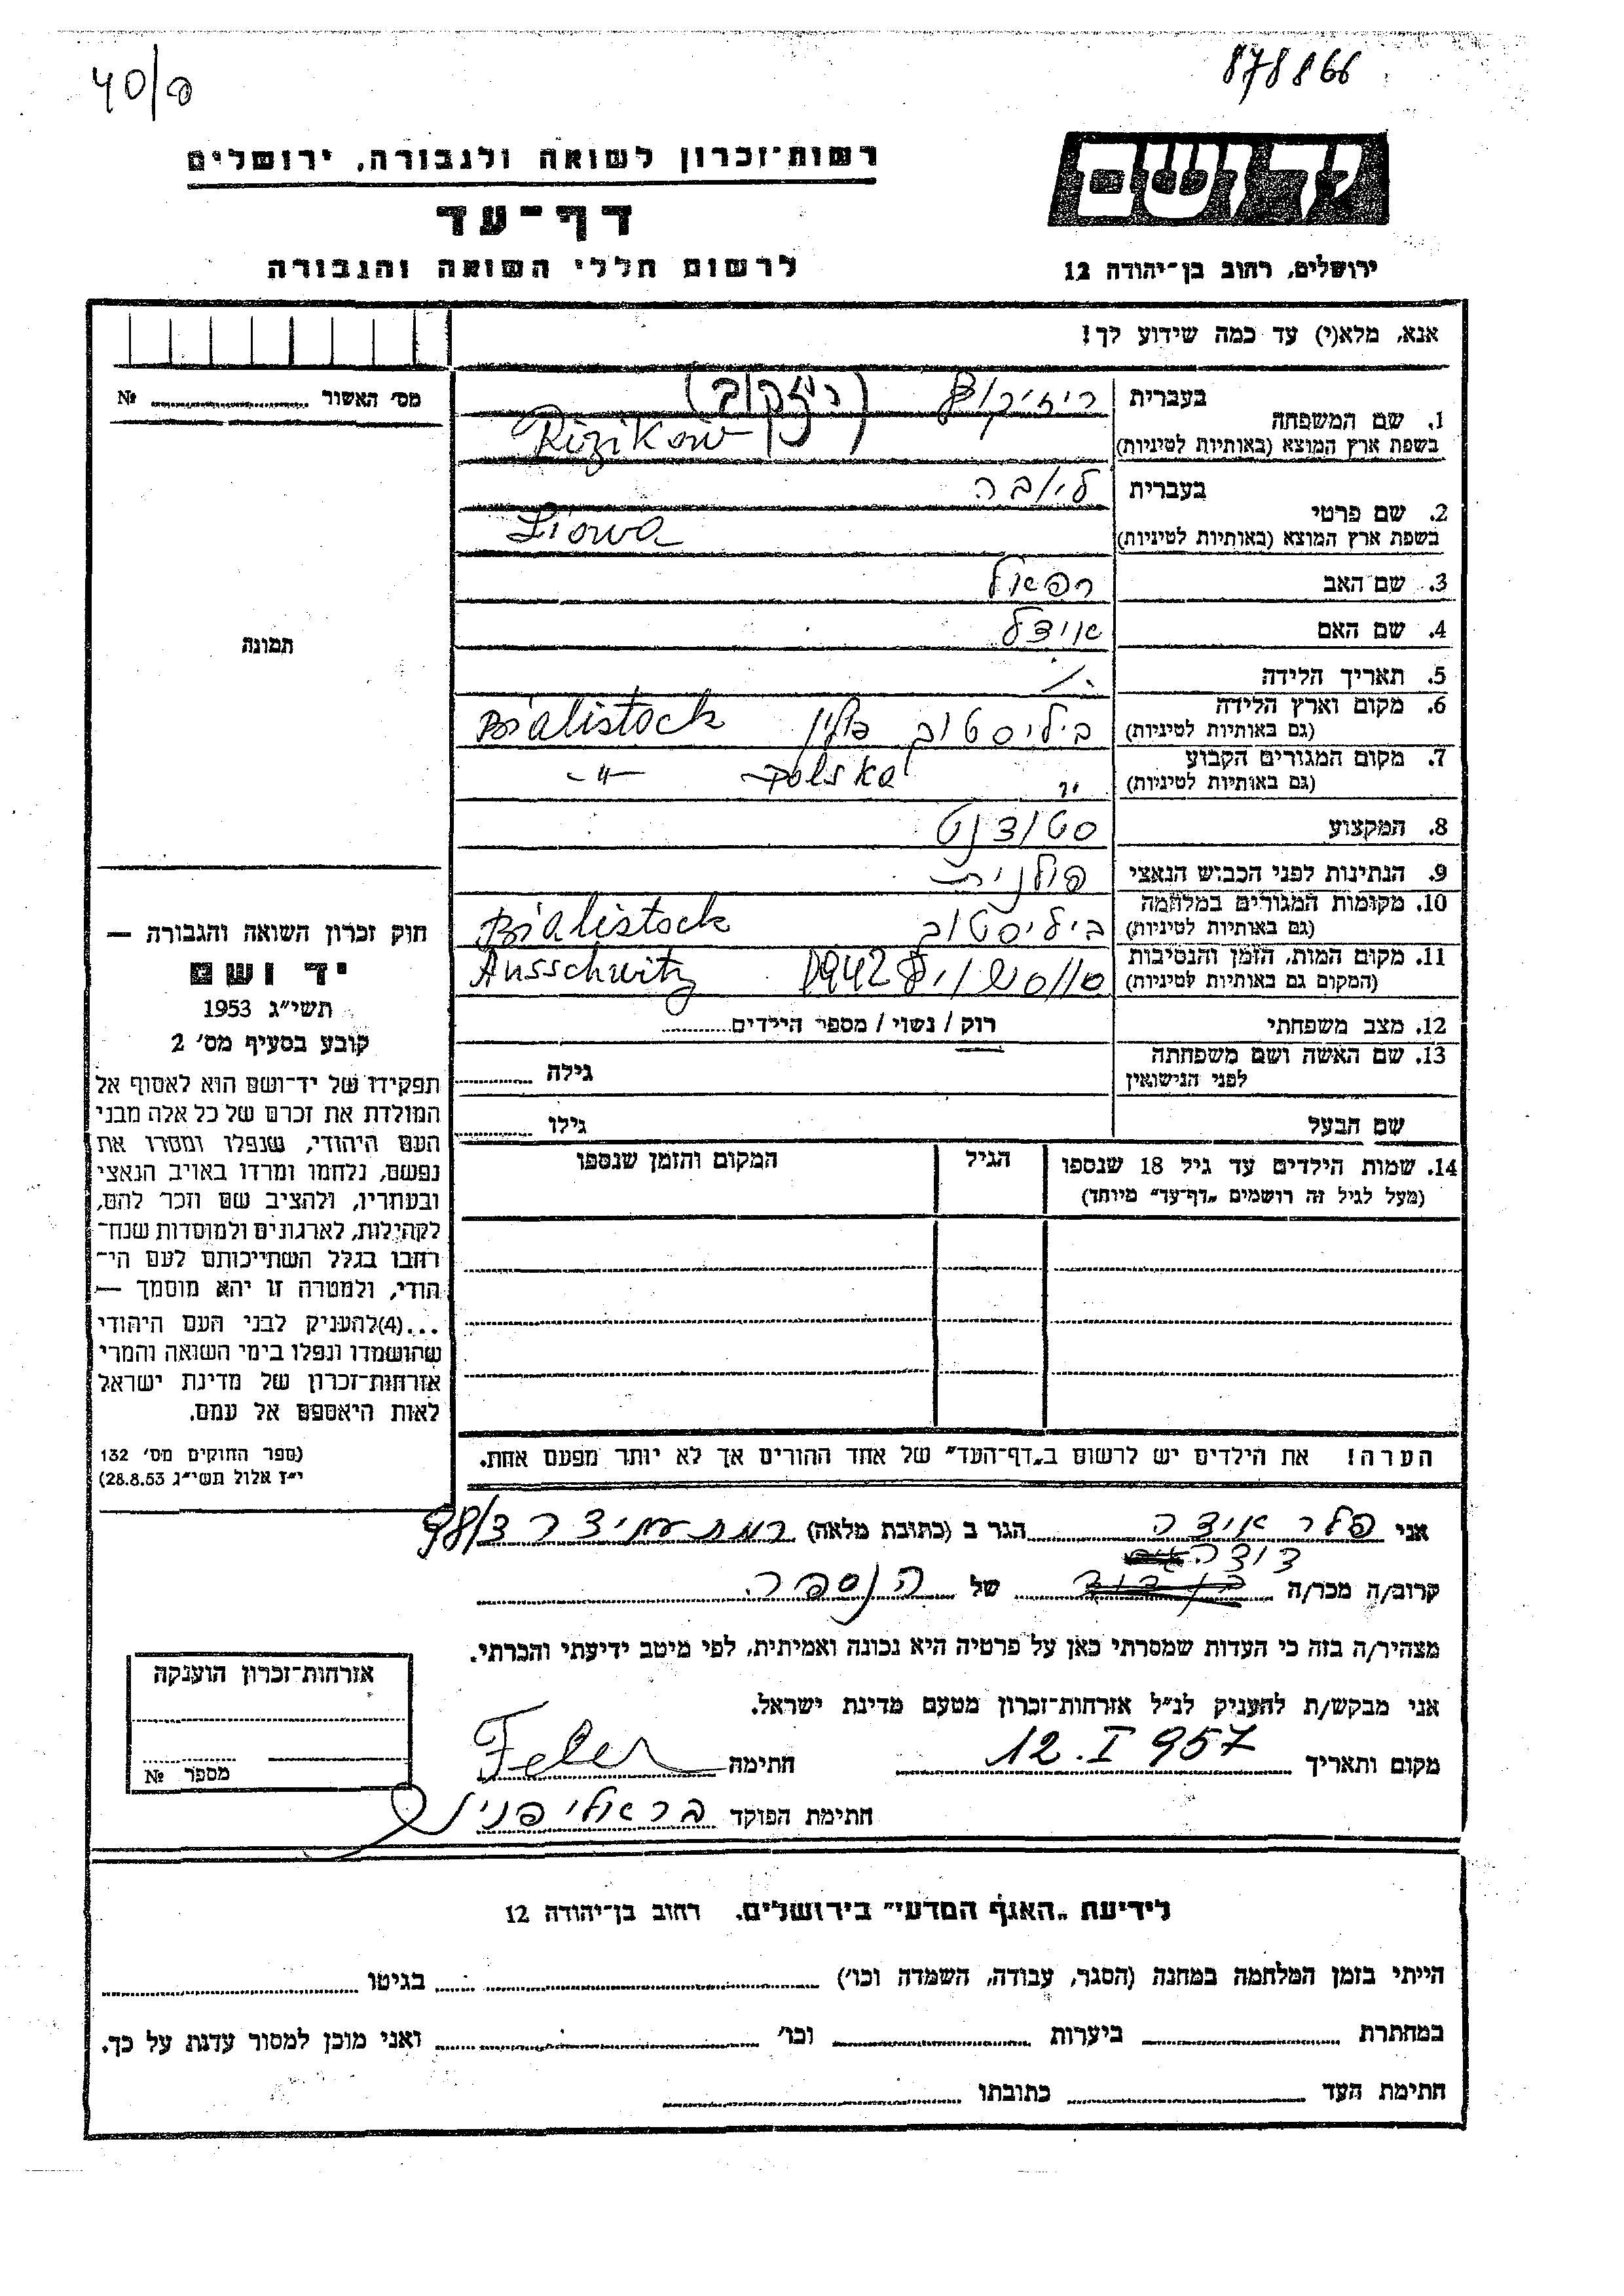 40/פ
878866
רשות־זכרון לשואה ולגבורה, ירושלים
דף־עד
לרשום חללי השואה והגבורה
ידושם
ירושלים, רחוב בן־יהודה 12
אנא, מלא(י) עד כמה שידוע לך!
מס׳ האשור № 
1. שם המשפחה
בעברית ריזיקוב (ריזקוב)
בשפת ארץ המוצא (באותיות לטיניות) Rizikow
2. שם פרטי
בעברית ליובה
בשפת ארץ המוצא (באותיות לטיניות) Liowa
3. שם האב רפאל
4. שם האם אידל
תמונה
5. תאריך הלידה ./.
6. מקום וארץ הלידה ביליסטוק פולין Bialistock
(גם באותיות לטיניות)
7. מקום המגורים הקבוע -"- Polska -"-
(גם באותיות לטיניות)
8. המקצוע סטודנט
9. הנתינות לפני הכבוש הנאצי פולנית
10. מקומות המגורים במלחמה ביליסטוק Bialistock
(גם באותיות לטיניות)
11. מקום המות, הזמן והנסיבות 1942 Ausschwitz
(המקום גם באותיות לטיניות)
12. מצב משפחתי רוק / נשוי / מספר הילדים
13. שם האשה ושם משפחתה גילה
לפני הנישואין
שם הבעל גילו
14. שמות הילדים עד גיל 18 שנספו הגיל המקום והזמן שנספו
(מעל לגיל זה רושמים „דף־עד” מיוחד)
הערה! את הילדים יש לרשום ב„דף־העד” של אחד ההורים אך לא יותר מפעם אחת.
חוק זכרון השואה והגבורה —
יד ושם
תשי״ג 1953
קובע בסעיף מס׳ 2
תפקידו של יד־ושם הוא לאסוף אל
המולדת את זכרם של כל אלה מבני
העם היהודי, שנפלו ומסרו את
נפשם, נלחמו ומרדו באויב הנאצי
ובעוזריו, ולהציב שם וזכר להם,
לקהילות, לארגונים ולמוסדות שנח־
רחבו בגלל השתייכותם לעם הי־
הודי, ולמטרה זו יהא מוסמך —
...(4)להעניק לבני העם היהודי
שהושמדו ונפלו בימי השואה והמרי
אזרחות־זכרון של מדינת ישראל
לאות היאספם אל עמם.
(ספר החוקים מס׳ 132
י״ז אלול תשי״ג 28.8.53)
אני פלר אידה הגר ב (כתובת מלאה) רמת עמידר
דודה
קרוב/ה מכר/ה של הנספה
מצהיר/ה בזה כי העדות שמסרתי כאן על פרטיה היא נכונה ואמיתית, לפי מיטב ידיעתי והכרתי.
אני מבקש/ת להעניק לנ״ל אזרחות־זכרון מטעם מדינת ישראל.
מקום ותאריך 12.I 957 חתימה Feler
חתימת הפוקד
אזרחות־זכרון הוענקה
מספר №
לידיעת „האגף המדעי” בירושלים, רחוב בן־יהודה 12
הייתי בזמן המלחמה במחנה (הסגר, עבודה, השמדה וכו׳) בגיטו
במחתרת ביערות וכו׳ ואני מוכן למסור עדות על כך.
חתימת העד כתובתו